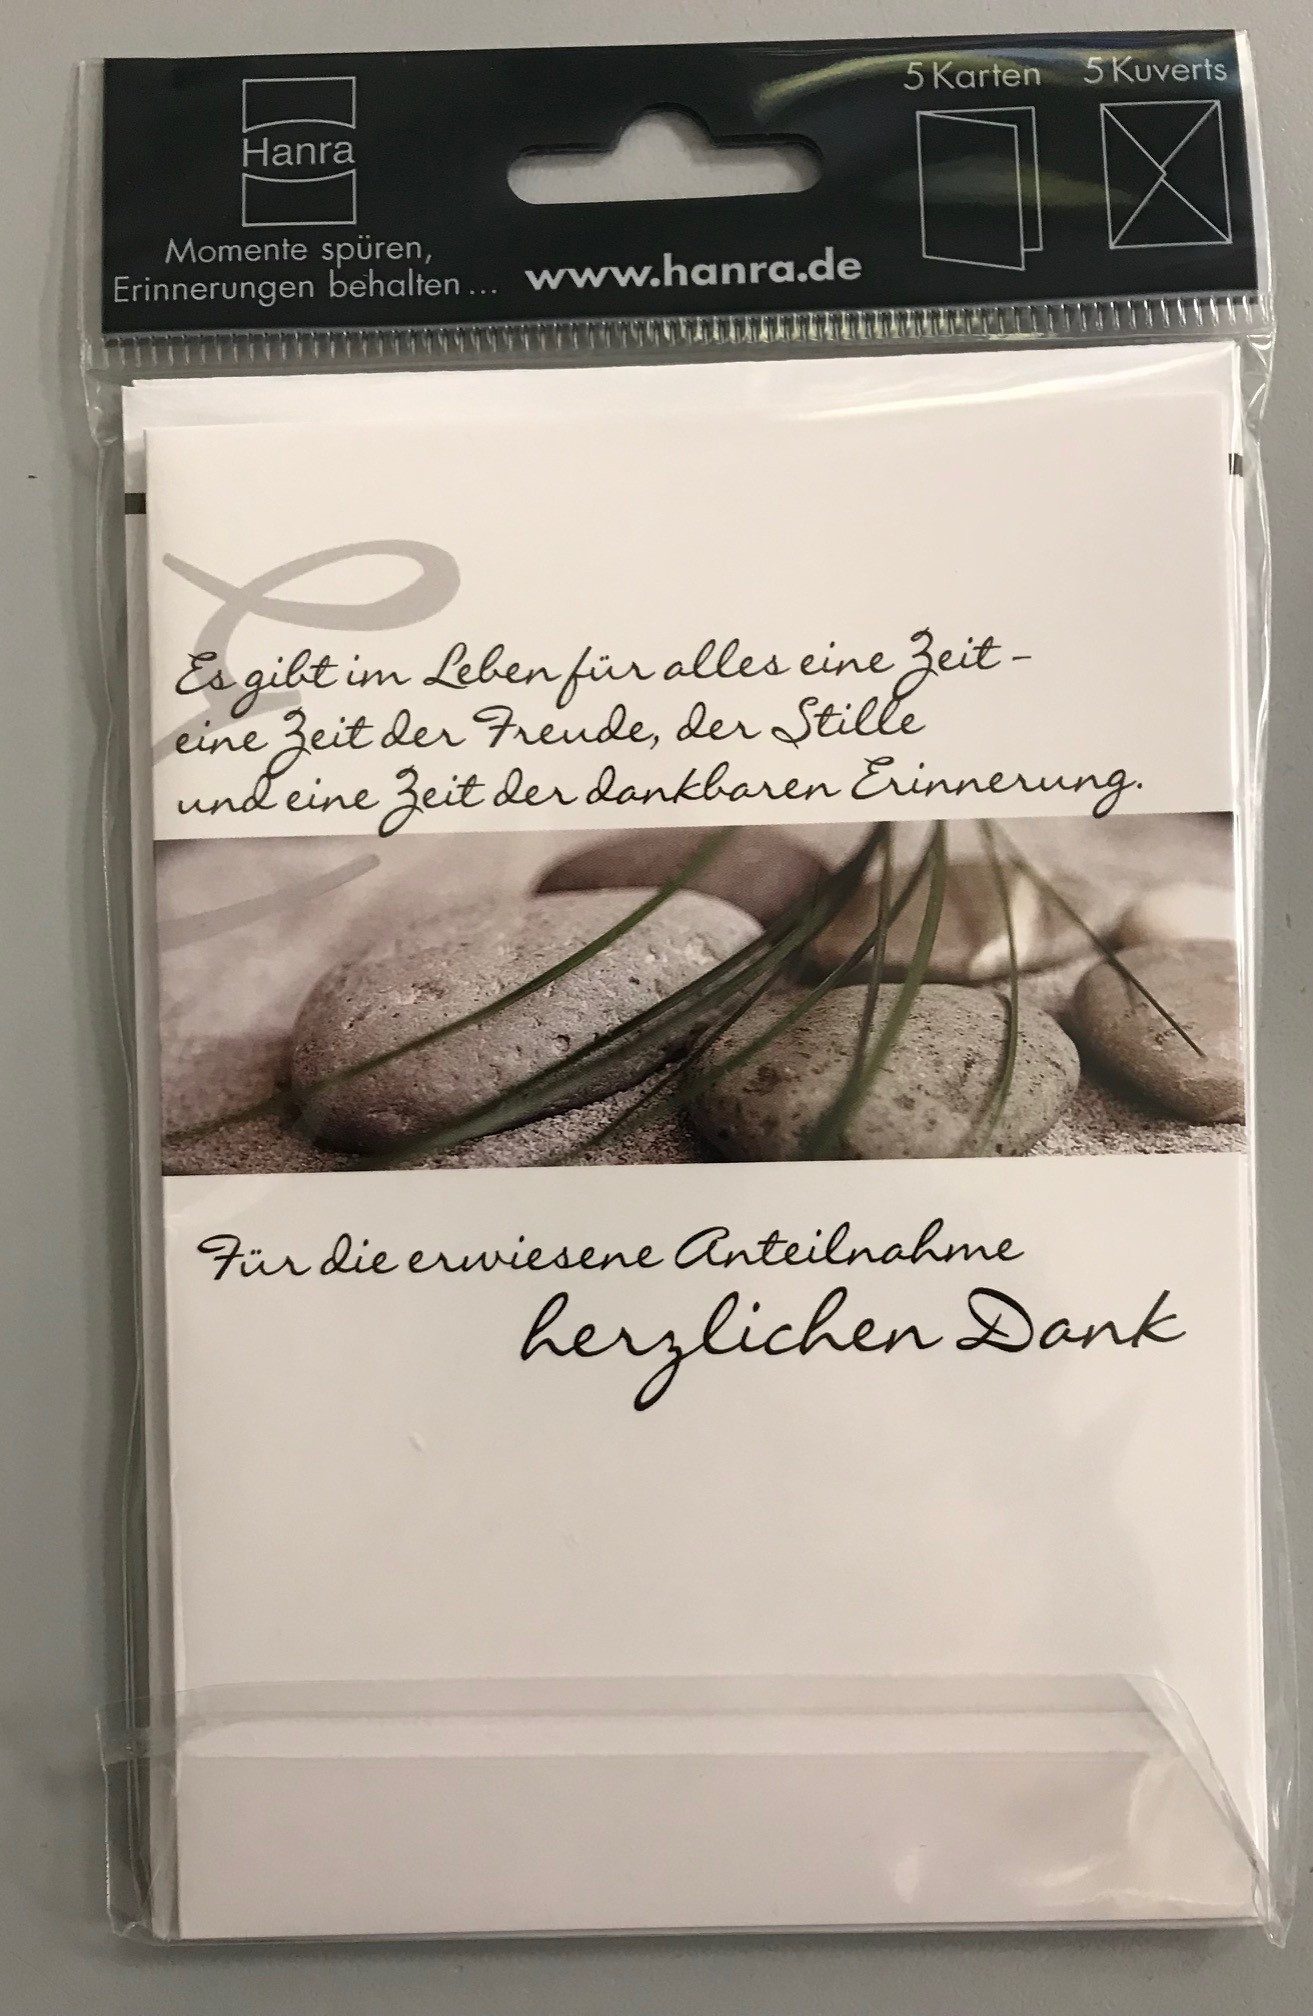 Hanra
Momente spüren,
Erinnerungen behalten...
www.hanra.de
5 Karten
5 Kuverts
Es gibt im Leben für alles eine Zeit -
eine Zeit der Freude, der Stille
und eine Zeit der dankbaren Erinnerung.
Für die erwiesene Anteilnahme
herzlichen Dank